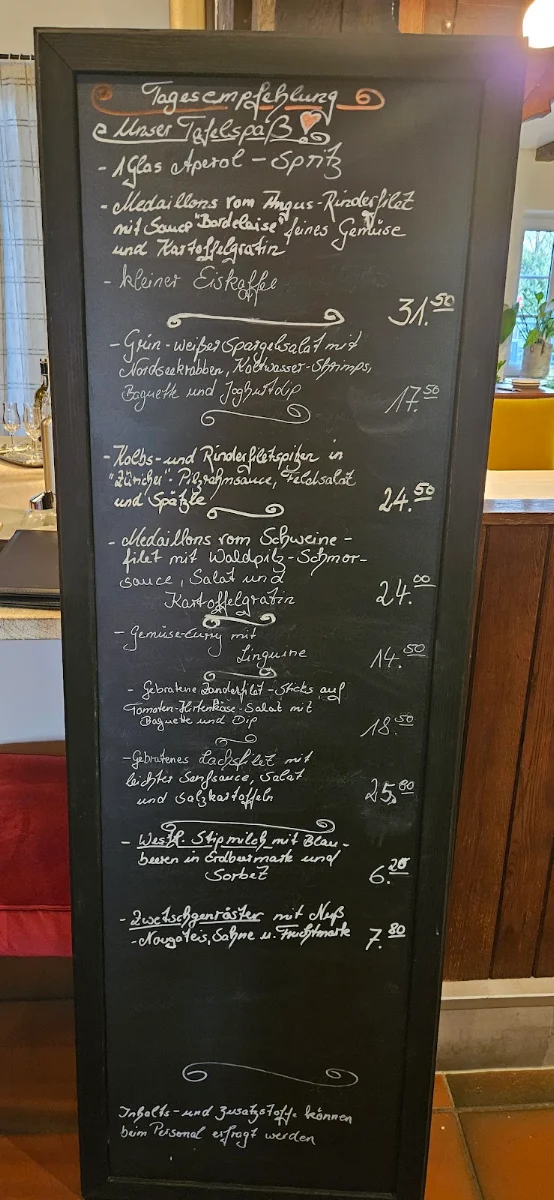 Tagesempfehlung
Unser Tafelspaß
- 1 Glas Aperol - Spritz
- Medaillons vom Angus-Rinderfilet
mit Sauce "Bordelaise" feines Gemüse
und Kartoffelgratin
- kleiner Eiskaffee
31.50
- Grün-weißer Spargelsalat mit
Nordseekrabben, Kaltwasser-Shrimps,
Baguette und Joghurtdip
17.50
- Kalbs- und Rinderfiletspitzen in
"Züricher" Pilzrahmsauce, Feldsalat
und Spätzle
24.50
- Medaillons vom Schweine-
filet mit Waldpilz-Schmor-
sauce, Salat und
Kartoffelgratin
24.00
- Gemüse-Curry mit
Linguine
14.50
- Gebratene Zanderfilet-Sticks auf
Tomaten-Hirtenkäse-Salat mit
Baguette und Dip
18.50
- Gebratenes Lachsfilet mit
leichter Senfsauce, Salat
und Salzkartoffeln
25.80
- Westf. Stipmilch mit Blau-
beeren in Erdbeermark und
Sorbet
6.20
- Zwetschgenröster mit Nuß
-Nougateis, Sahne u. Fruchtmark
7.80
Inhalts- und Zusatzstoffe können
beim Personal erfragt werden